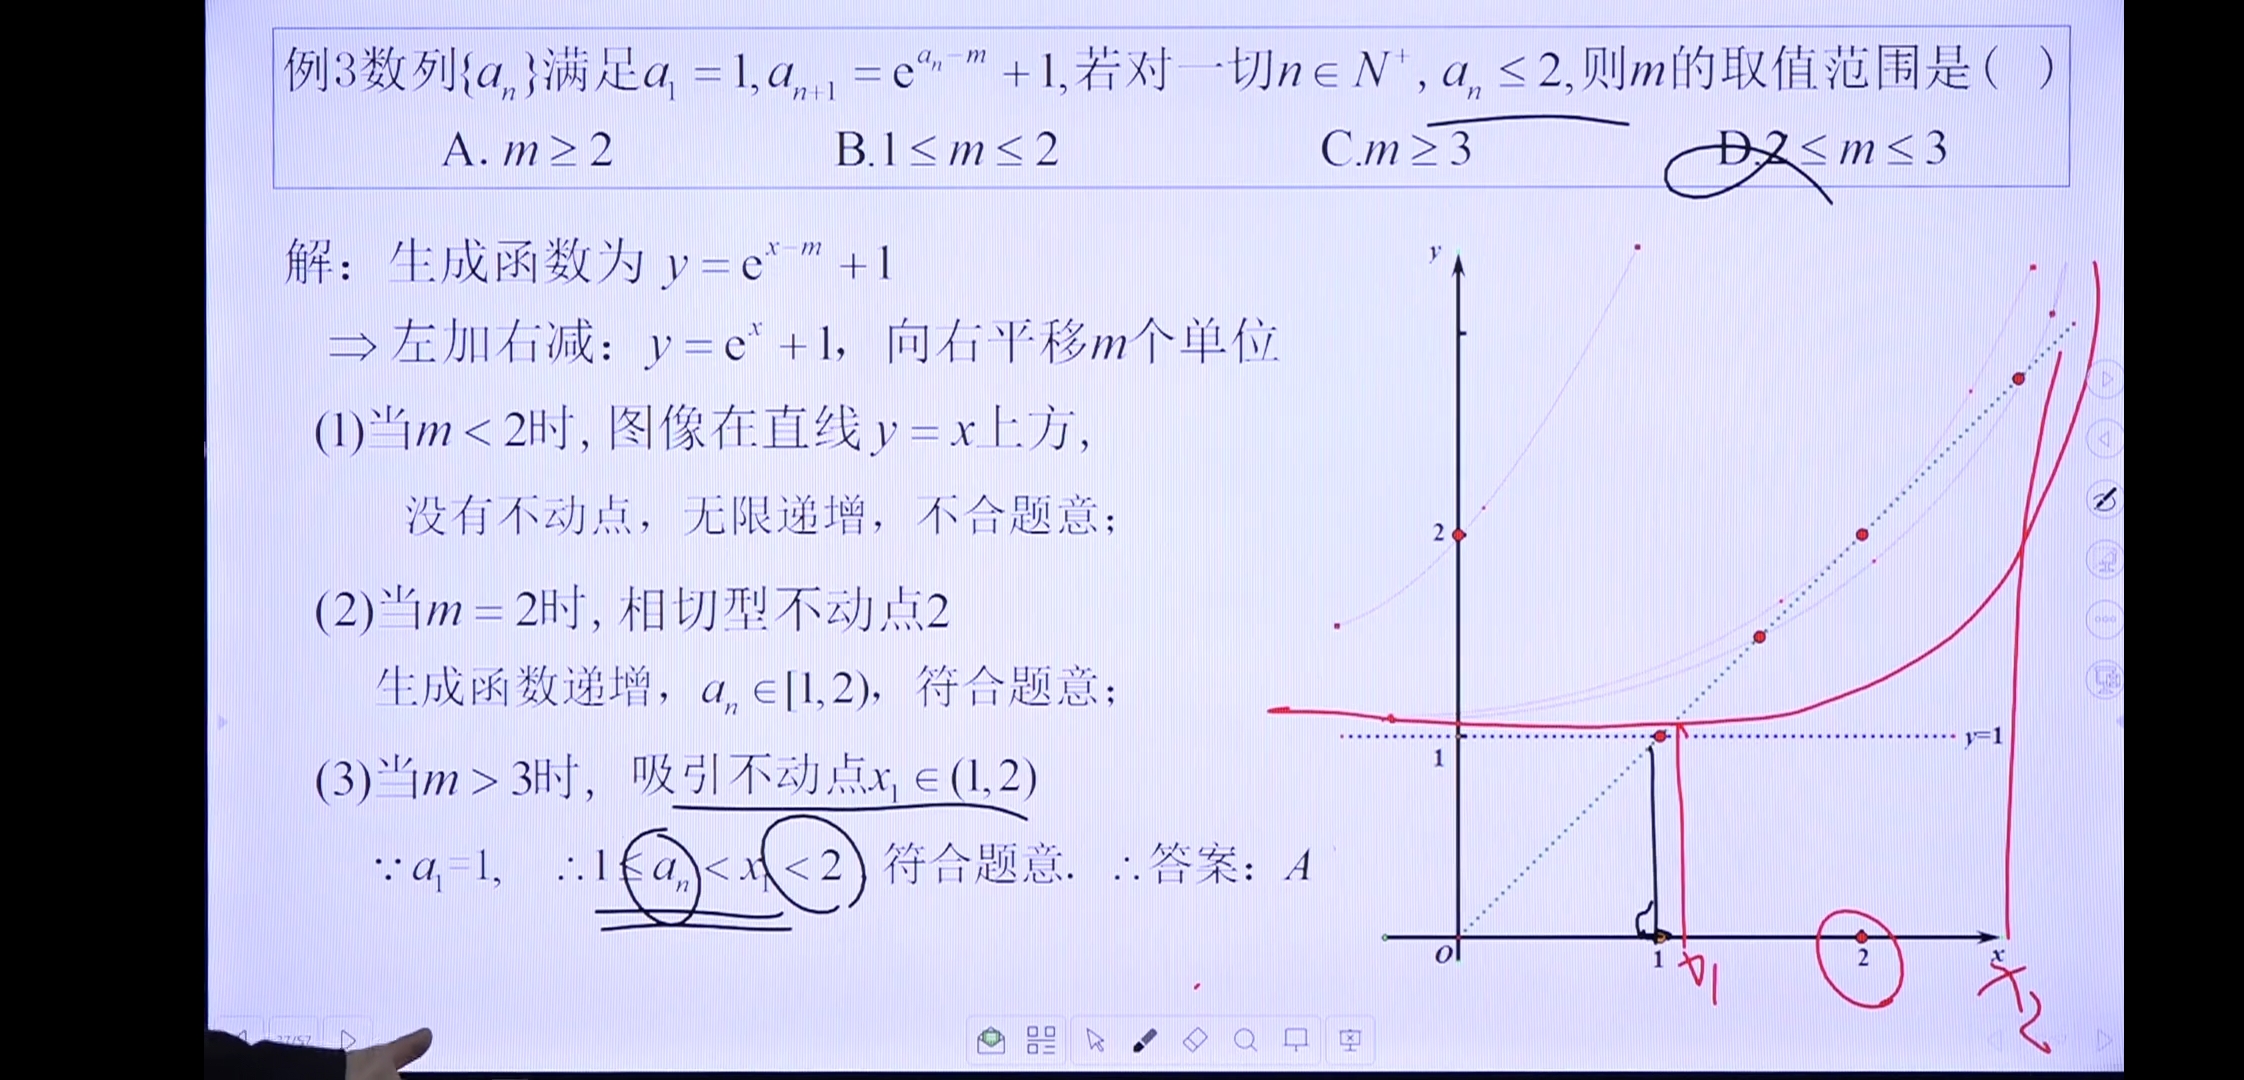 例3数列{aₙ}满足a₁ = 1, aₙ₊₁ = e^(aₙ−m) + 1, 若对一切n ∈ N⁺, aₙ ≤ 2, 则m的取值范围是( )
A. m ≥ 2 B.1 ≤ m ≤ 2 C.m ≥ 3 D.2 ≤ m ≤ 3
解：生成函数为 y = e^(x−m) + 1
⇒ 左加右减：y = e^x + 1，向右平移m个单位
(1)当m < 2时, 图像在直线 y = x上方,
没有不动点，无限递增，不合题意；
(2)当m = 2时, 相切型不动点2
生成函数递增，aₙ ∈ [1, 2)，符合题意；
(3)当m > 3时，吸引不动点x₁ ∈ (1, 2)
∵ a₁=1, ∴ 1 ≤ aₙ < x₁ < 2 符合题意. ∴ 答案：A
y
2
1
y=1
O
1
2
x
x₁
x₂
27/57